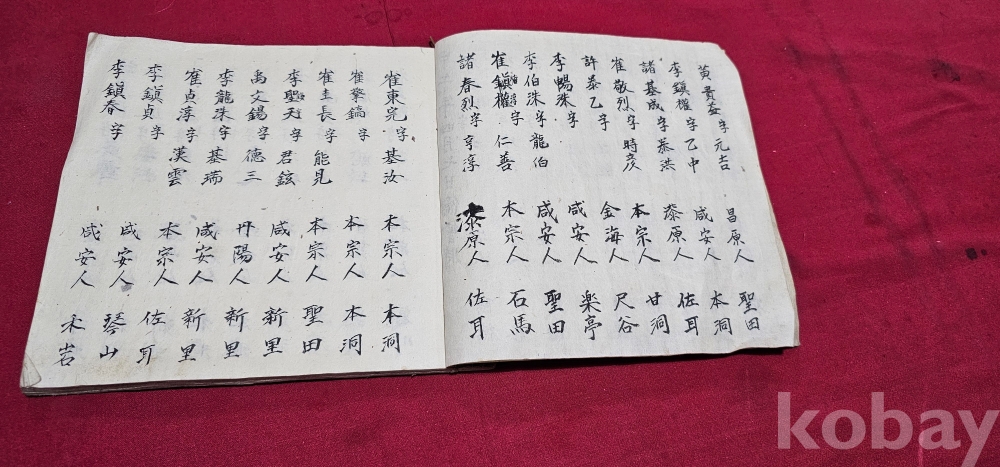 黃貴益字元吉 昌原人 聖田
李鎭權字乙中 咸安人 本洞
諸基成字泰洪 漆原人 佐耳
崔敬烈字時彦 本宗人 甘洞
許泰乙字 金海人 尺谷
李暢珠字 咸安人 楽亭
李伯洙字龍伯 咸安人 聖田
崔鎭權字仁善 本宗人 石馬
諸春烈字亨淳 漆原人 佐耳
崔東完字基汝 本宗人 本洞
崔鎬字 本宗人 本洞
崔圭長字能見 本宗人 聖田
李聖天字君鉉 咸安人 新里
禹文錫字德三 丹陽人 新里
李龍珠字基瑞 咸安人 新里
崔貞淳字漢雲 本宗人 新里
李鎭貞字 咸安人 佐耳
李鎭春字 咸安人 琴山
禾岩
kobay